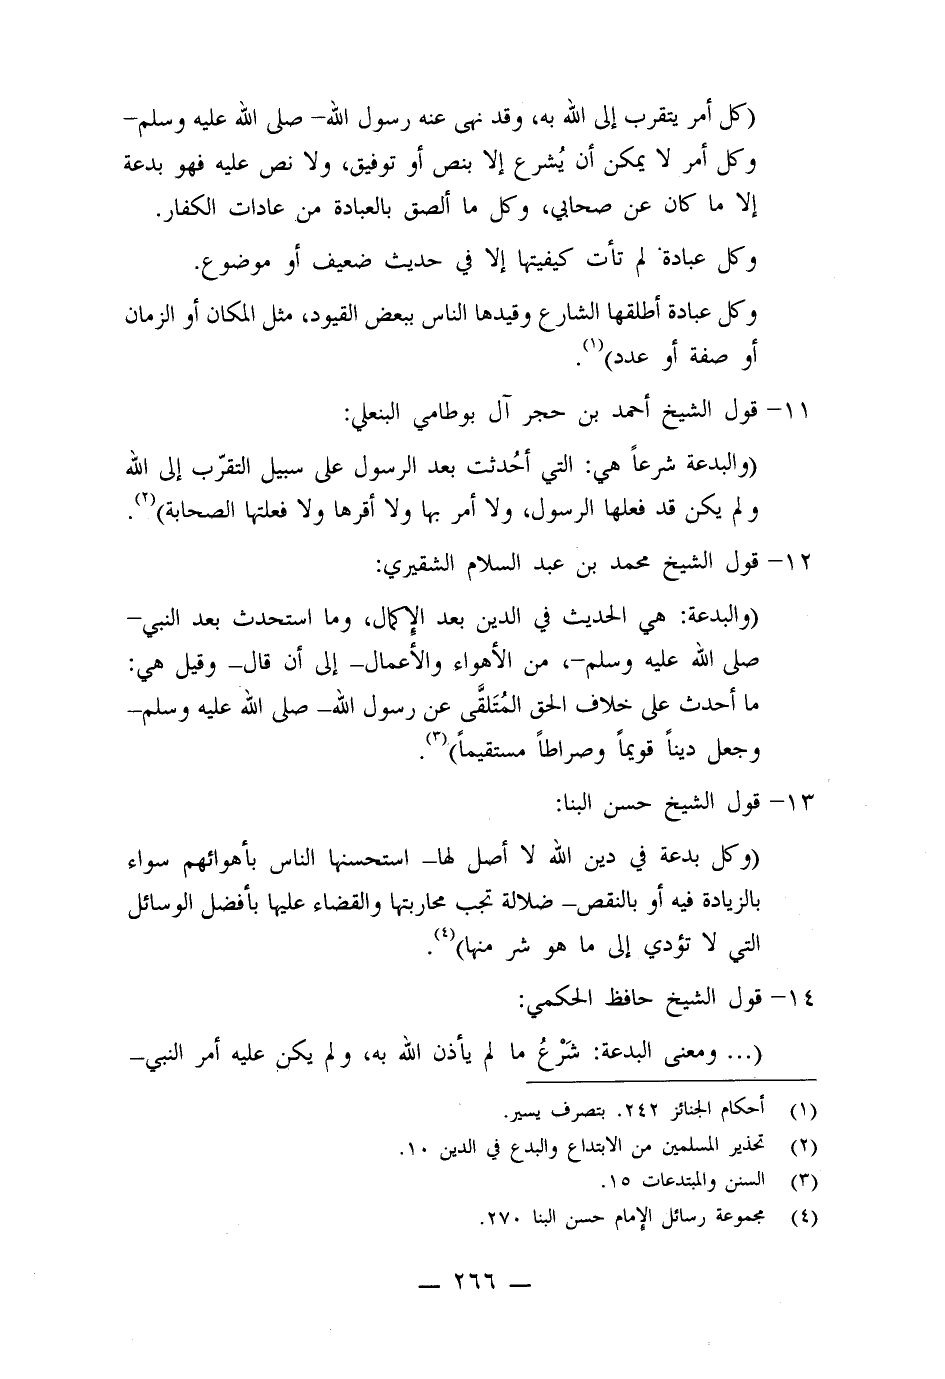 (كل أمر يتقرب إلى الله به، وقد نهى عنه رسول الله– صلى الله عليه وسلم–
وكل أمر لا يمكن أن يُشرع إلا بنص أو توفيق، ولا نص عليه فهو بدعة
إلا ما كان عن صحابي، وكل ما ألصق بالعبادة من عادات الكفار.
وكل عبادة لم تأت كيفيتها إلا في حديث ضعيف أو موضوع.
وكل عبادة أطلقها الشارع وقيدها الناس ببعض القيود، مثل المكان أو الزمان
أو صفة أو عدد)(١).
١١– قول الشيخ أحمد بن حجر آل بوطامي البنعلي:
(والبدعة شرعاً هي: التي أُحدثت بعد الرسول على سبيل التقرّب إلى الله
ولم يكن قد فعلها الرسول، ولا أمر بها ولا أقرها ولا فعلتها الصحابة)(٢).
١٢– قول الشيخ محمد بن عبد السلام الشقيري:
(والبدعة: هي الحديث في الدين بعد الإكمال، وما استحدث بعد النبي–
صلى الله عليه وسلم–، من الأهواء والأعمال– إلى أن قال– وقيل هي:
ما أحدث على خلاف الحق المُتَلقَّى عن رسول الله– صلى الله عليه وسلم–
وجعل ديناً قويماً وصراطاً مستقيماً)(٣).
١٣– قول الشيخ حسن البنا:
(وكل بدعة في دين الله لا أصل لها– استحسنها الناس بأهوائهم سواء
بالزيادة فيه أو بالنقص– ضلالة تجب محاربتها والقضاء عليها بأفضل الوسائل
التي لا تؤدي إلى ما هو شر منها)(٤).
١٤– قول الشيخ حافظ الحكمي:
(... ومعنى البدعة: شَرْعُ ما لم يأذن الله به، ولم يكن عليه أمر النبي–
(١) أحكام الجنائز ٢٤٢. بتصرف يسير.
(٢) تحذير المسلمين من الابتداع والبدع في الدين ١٠.
(٣) السنن والمبتدعات ١٥.
(٤) مجموعة رسائل الإمام حسن البنا ٢٧٠.
– ٢٦٦ –